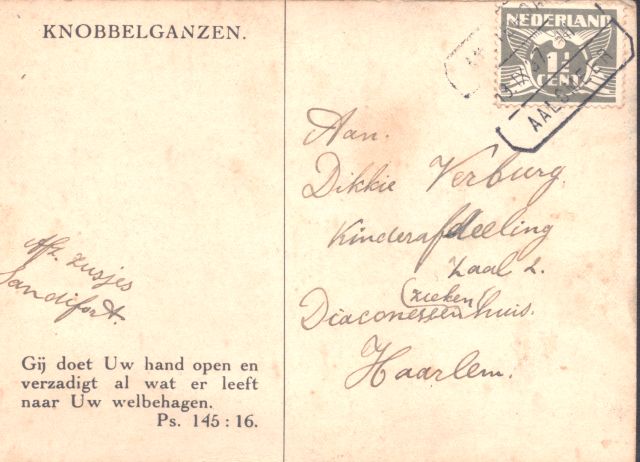 KNOBBELGANZEN.
NEDERLAND
1½
CENT
AALSMEER
Aan.
Dikkie Verburg.
Kinderafdeeling
Zaal 2.
(zieken)
Diaconessenhuis.
Haarlem.
Afz. zusjes
Sandifort.
Gij doet Uw hand open en
verzadigt al wat er leeft
naar Uw welbehagen.
Ps. 145 : 16.